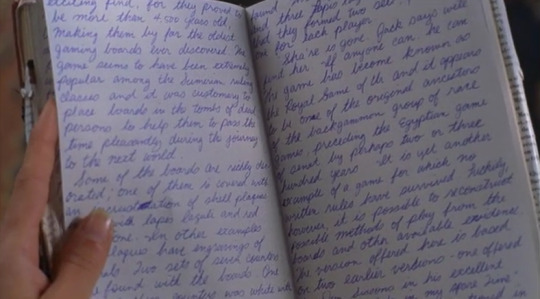 exciting find, for they proved to
be more than 4,500 years old
making them by far the oldest
gaming boards ever discovered. The
game seems to have been extremely
popular among the Sumerian ruling
classes and it was customary to
place boards in the tombs of dead
persons to help them to pass the
time pleasantly during the journey
to the next world.
Some of the boards are richly
of them is covered with
of shell plaques
with lapis lazuli and red
In other examples
plaques have engravings of
Two sets of seven counters
found with the boards. One
counters was white
found
and three
that they formed two sets
one for each player.
Sha're is gone. Jack says we'll
find her. If anyone can, he can
The game has become known as
the Royal Game of Ur and it appears
to be one of the original ancestors
of the backgammon group of race
games, preceding the Egyptian game
of senet by perhaps two or three
hundred years. It is yet another
example of a game for which no
written rules have survived. Luckily,
however, it is possible to reconstruct
possible methods of play from the
boards and other available evidence
The version offered here is based
on two earlier versions - one offered
in his excellent